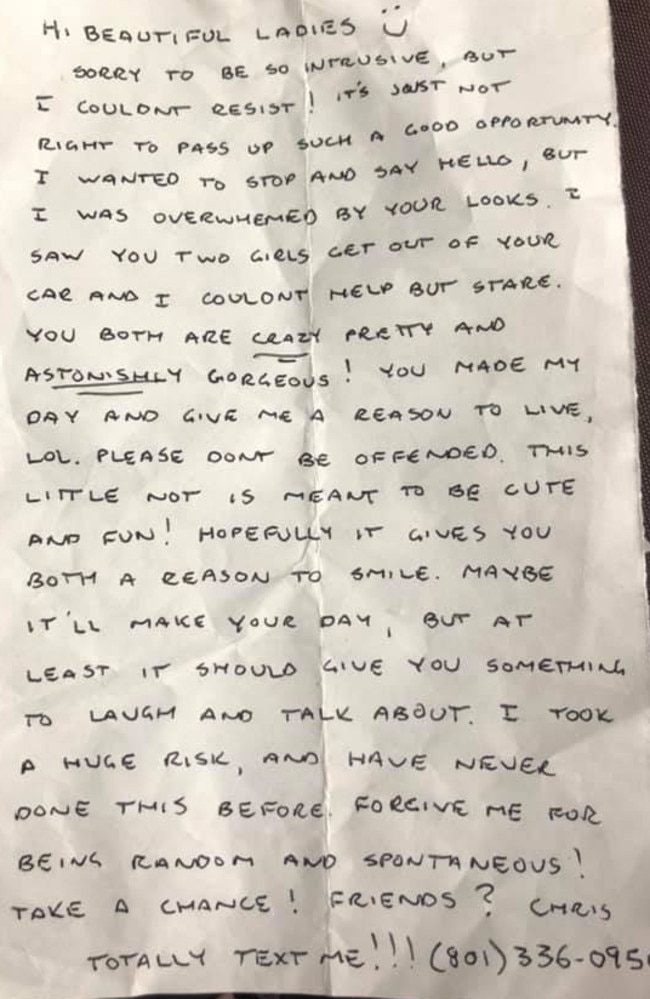 HI BEAUTIFUL LADIES Ü
SORRY TO BE SO INTRUSIVE, BUT
I COULDNT RESIST! IT'S JUST NOT
RIGHT TO PASS UP SUCH A GOOD OPPORTUNITY.
I WANTED TO STOP AND SAY HELLO, BUT
I WAS OVERWHEMED BY YOUR LOOKS. I
SAW YOU TWO GIRLS GET OUT OF YOUR
CAR AND I COULDNT HELP BUT STARE.
YOU BOTH ARE CRAZY PRETTY AND
ASTONISHLY GORGEOUS! YOU MADE MY
DAY AND GIVE ME A REASON TO LIVE,
LOL. PLEASE DONT BE OFFENDED. THIS
LITTLE NOT IS MEANT TO BE CUTE
AND FUN! HOPEFULLY IT GIVES YOU
BOTH A REASON TO SMILE. MAYBE
IT'LL MAKE YOUR DAY, BUT AT
LEAST IT SHOULD GIVE YOU SOMETHING
TO LAUGH AND TALK ABOUT. I TOOK
A HUGE RISK, AND HAVE NEVER
DONE THIS BEFORE. FORGIVE ME FOR
BEING RANDOM AND SPONTANEOUS!
TAKE A CHANCE! FRIENDS? CHRIS
TOTALLY TEXT ME!!! (801) 336-095